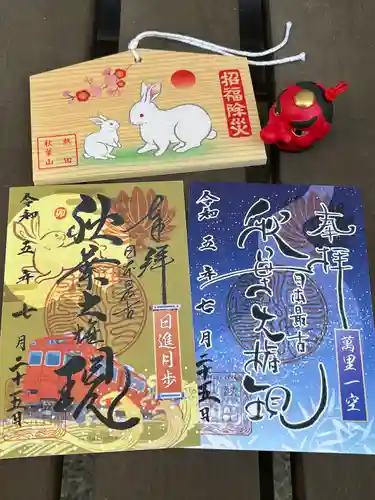 招福除災
熱田
秋葉山
奉拝
日本最古
秋葉大権現
日進月歩
令和五年七月二十五日
奉拝
日本最古
秋葉大権現
萬里一空
令和五年七月二十五日